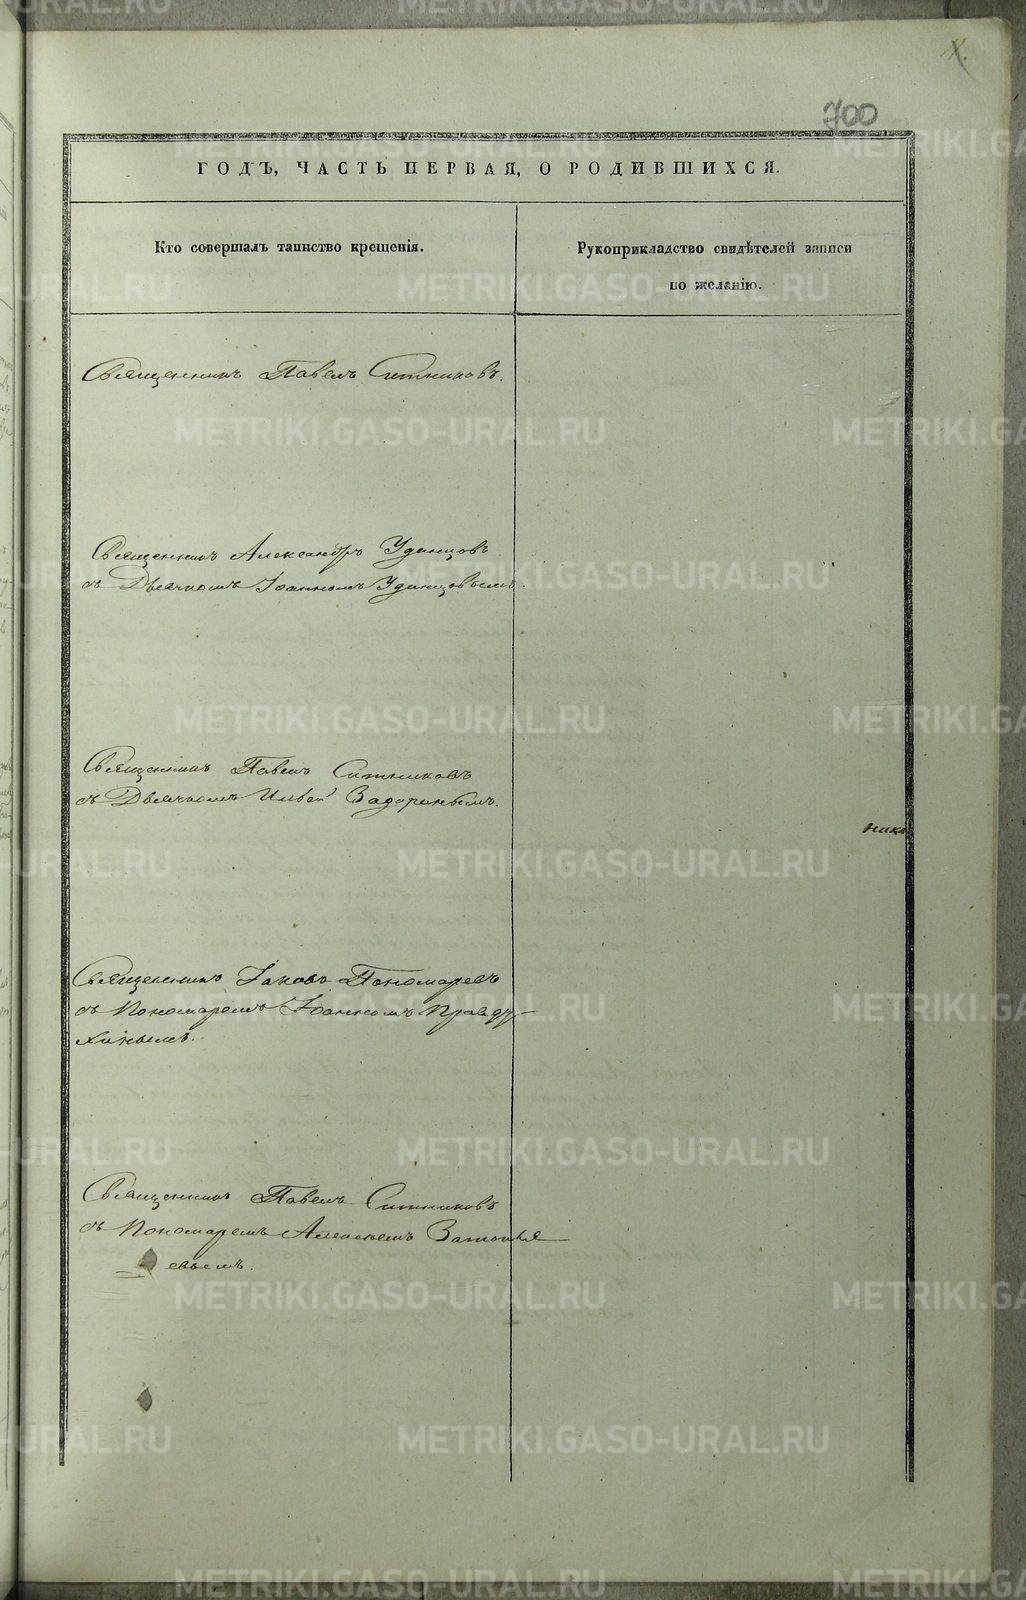 700
ГОДЪ, ЧАСТЬ ПЕРВАЯ, О РОДИВШИХСЯ.
Кто совершалъ таинство крещенія.
Рукоприкладство свидѣтелей записи
по желанію.
Священникъ Павелъ Ситниковъ.
Священникъ Александръ Удинцовъ
съ Дьячкомъ Іоанномъ Удинцовымъ.
Священникъ Павелъ Ситниковъ
съ Дьячкомъ Ильей Задоринымъ.
ника
Священникъ Іаковъ Пономаревъ
съ Пономаремъ Іоанномъ Правду-
хинымъ.
Священникъ Павелъ Ситниковъ
съ Пономаремъ Алексѣемъ
евымъ.
METRIKI.GASO-URAL.RU